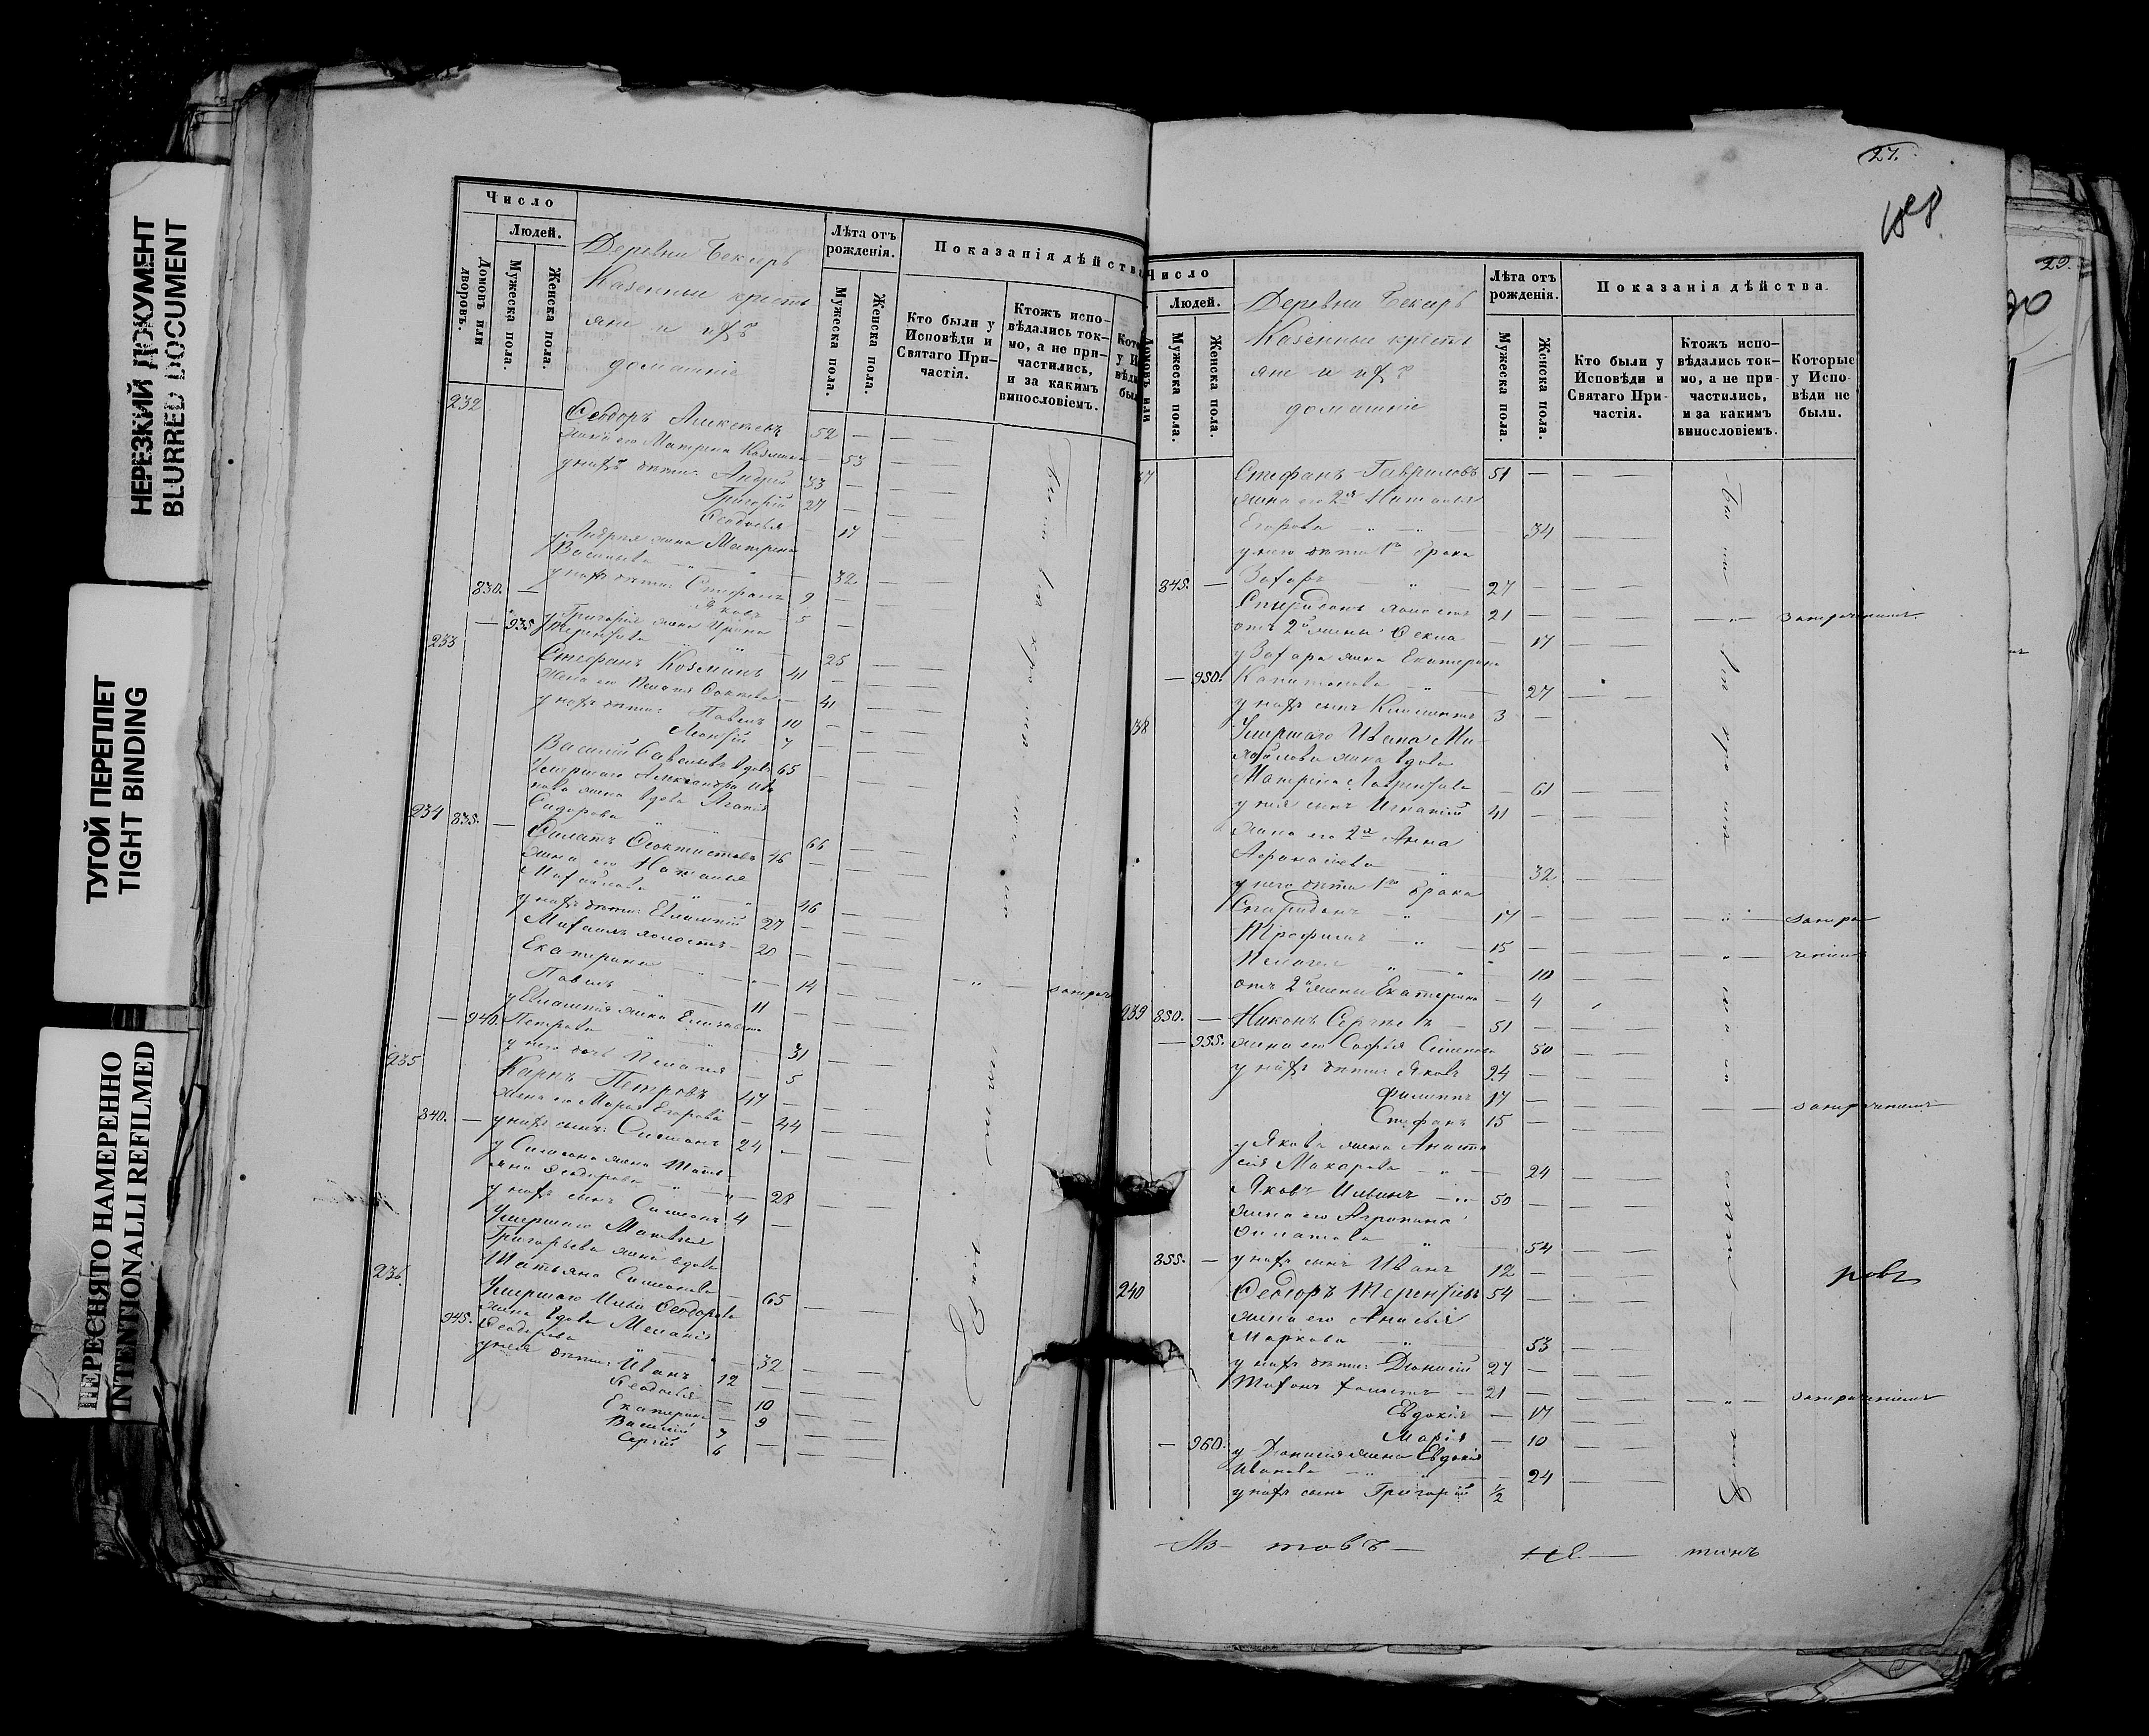 НЕРЕЗКИЙ ДОКУМЕНТ
BLURRED DOCUMENT
ТУГОЙ ПЕРЕПЛЕТ
TIGHT BINDING
ПЕРЕСНЯТО НАМЕРЕННО
INTENTIONALLI REFILMED
Число
Людей.
Домовъ или дворовъ.
Мужеска пола.
Женска пола.
Деревни Бекиръ
Казенные кресть
яне и ихъ
домашніе
Лѣта отъ рожденія.
Мужеска пола.
Женска пола.
Показанія дѣйства
Кто были у Исповѣди и Святаго Причастія.
Ктожъ исповѣдались токмо, а не причастились, и за какимъ винословіемъ.
232 Ѳеодоръ Алексѣевъ 52
жена его Матрена Козмина 53
у нихъ дѣти: Андрей 33
Григорій 27
Ѳеодосья 17
у Андрея жена Матрена
Васильева 32
830. у нихъ дѣти: Стефанъ 9
Яковъ 5
935 у Григорія жена Ирина
Терентьева 25
233 Стефанъ Козминъ 41
жена его Пелагія 41
у нихъ дѣти: Павелъ 10
Леонтій 7
Василій Савельевъ вдовъ 65
Умершаго Александра Ива
нова жена вдова Агафія
Сидорова 66
234 835. Филатъ Ѳеоктистовъ 46
жена его Наталья
Михайлова 46
у нихъ дѣти: Евлампій 27
Михаилъ холостъ 20
Екатерина 14
Павелъ 11
у Евлампія жена Елизавета
940. Петрова 31
у него дочь Пелагія 5
235 Карпъ Петровъ 47
жена его Марья Егорова 44
840. у нихъ сынъ: Симеонъ 24
у Симеона жена Татья
яна Ѳеодорова 28
у нихъ сынъ Симеонъ 4
Умершаго Матвѣя
Григорьева жена вдова
Татьяна Симеонова 65
236. Умершаго Ильи Ѳеодорова
жена вдова Меланія
945. Ѳеодорова 32
у нея дѣти: Иванъ 12
Ѳеодосья 10
Екатерина 9
Василій 7
Сергій 6
27.
188
Число
Людей.
Домовъ или
Мужеска пола.
Женска пола.
Деревни Бекиръ
Казенные кресть
яне и ихъ
домашніе
Лѣта отъ рожденія.
Мужеска пола.
Женска пола.
Показанія дѣйства.
Кто были у Исповѣди и Святаго Причастія.
Ктожъ исповѣдались токмо, а не причастились, и за какимъ винословіемъ.
Которые у Исповѣди не были.
37 Стефанъ Гавриловъ 51
жена его 2я Наталья
Егорова 34
у него дѣти 1го брака
845. Захаръ 27
Спиридонъ холостъ 21
отъ 2й жены Ѳекла 17
у Захара жена Екатерина
950. Капитонова 27
у нихъ сынъ Климентъ 3
238 Умершаго Ивана Ми
хайлова жена вдова
Матрена Лаврентьева 61
у нея сынъ Игнатій 41
жена его 2я Анна
Афонасіева 32
у него дѣти 1го брака
Спиридонъ 17
Трофимъ 15
Пелагія 10
отъ 2й жены Екатерина 4
239 850. Никонъ Сергѣевъ 51
955. жена его Софья 50
у нихъ дѣти: Яковъ 24
Филиппъ 17
Стефанъ 15
у Якова жена Анаста
сія Макарова 24
Яковъ Ильинъ 50
жена его Агрипина
Филатова 54
855. у нихъ сынъ Иванъ 12
240 Ѳеодоръ Терентьевъ 54
жена его Анисія
Маркова 53
у нихъ дѣти: Діонисій 27
Тихонъ холостъ 21
Евдокія 17
Марія 10
960. у Діонисія жена Евдокія
Иванова 24
у нихъ сынъ Григорій 1/2
ровъ
29.